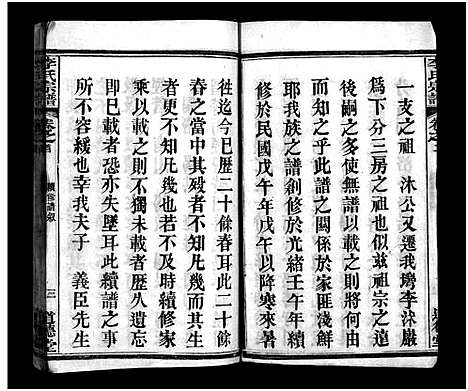 李氏宗譜
卷之首
一支之祖　沐公又遷我塆李沐巖
為下分三房之祖也似茲祖宗之遺
後嗣之多使無譜以載之則將何由
而知之乎此譜之關係於家匪淺鮮
耶我族之譜創修於光緒壬午年續
修於民國戊午年戊午以降寒來暑
往迄今已歷二十餘春耳此二十餘
春之當中其歿者不知凡幾而其生
者亦更不知凡幾也若不及時續修家
乘以載之者不獨未載者歷久遺忘
即巳載者恐亦失墜耳此續譜之事
所不容緩也幸我夫子　義臣先生
李氏宗譜
卷之首
續修譜敘
三
道德堂